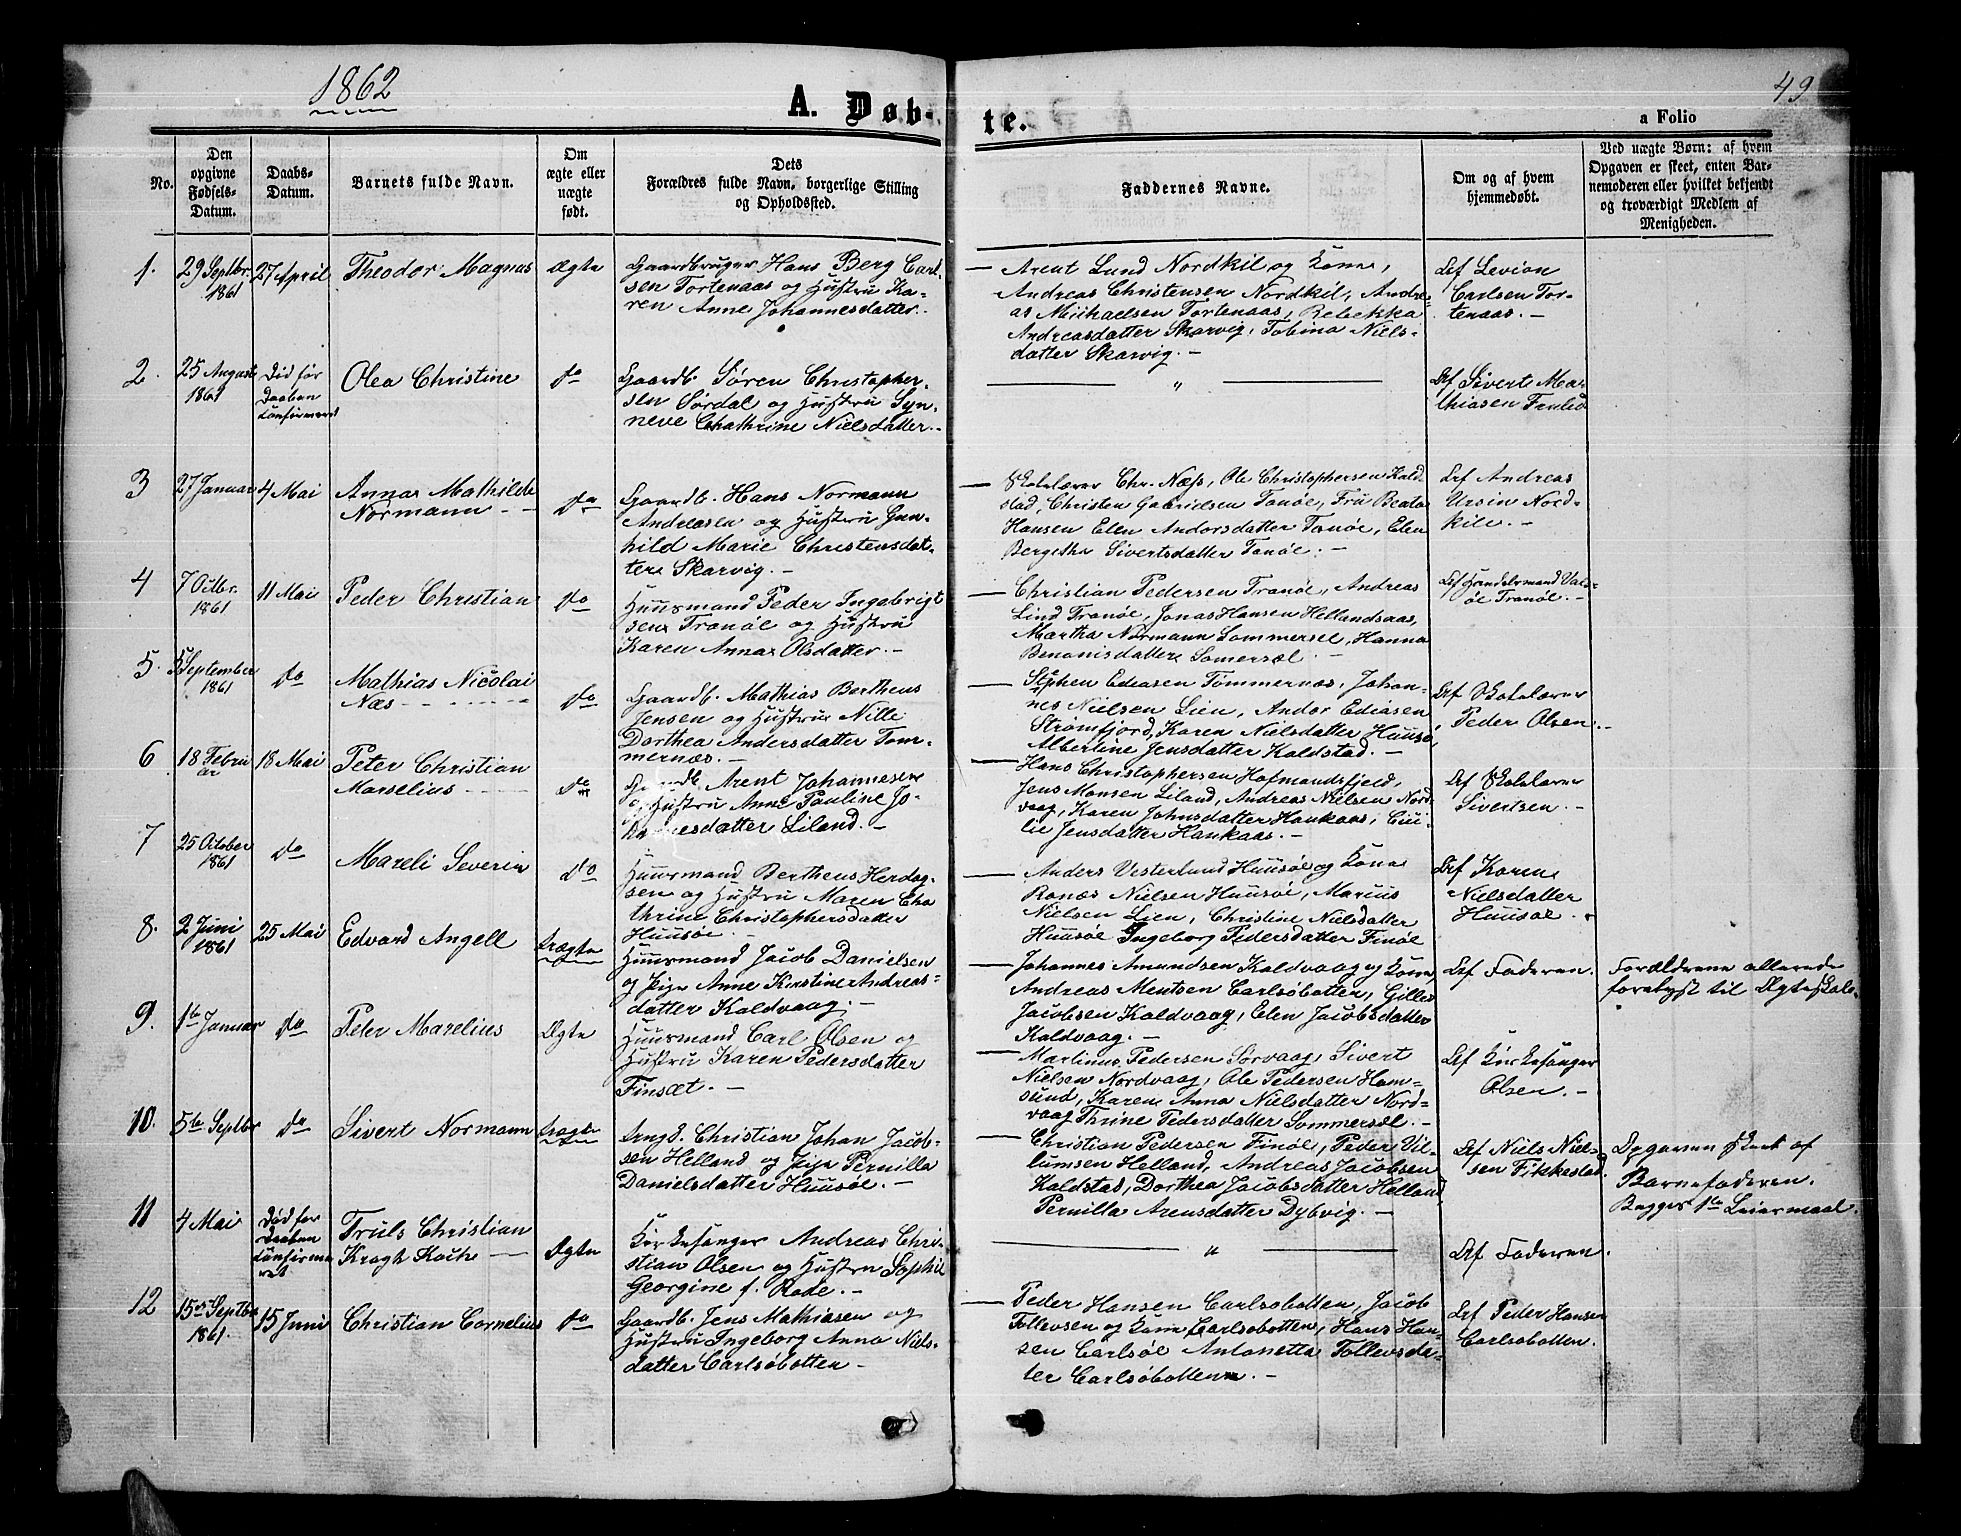 1862
A. Døb-
te.
49
a Folio
No.
Den opgivne Fødsels-Datum.
Daabs-Datum.
Barnets fulde Navn.
Om ægte eller uægte født.
Dets Forældres fulde Navn, borgerlige Stilling og Opholdssted.
Faddernes Navne.
Om og af hvem hjemmedøbt.
Ved uægte Børn: af hvem Opgaven er skeet, enten Barnemoderen eller hvilket bekjendt og troværdigt Medlem af Menigheden.
1.
29 Septbr.
1861
27 April
Theodor Magnus
Ægte
Gaardbruger Hans Berg Carl-
sen Tortenaas og Hustru Ka-
ren Anne Johannesdatter.
Arent Lund Nordkil og Kone,
Andreas Christensen Nordkil, Andre-
as Michaelsen Tortenaas, Bebekka
Andreasdatter Skarvig, Tobina Niels-
datter Skarvig. -
Levion
Carlsen Tor-
tenaas. -
2.
25 August
1861
Død før
Daaben
Olea Christine
do
Gaardb. Søren Christopher-
sen Sørdal og Hustru Syn-
neve Chathrine Nielsdatter. -
"
Sivert Ma-
thiasen
3
27 Januar
4 Mai
Anna Mathilde
Normann -
do
Gaardb. Hans Normann
Andreasen og Hustru Gun-
hild Marie Christensdat-
ter Skarvig. -
Skolelærer Chr. Næss, Ole Christophersen Kald-
stad, Christen Gabrielsen Tanøe, Fru Beata
Hansen Elen Andorsdatter Tanøe, Elen
Bergitha Sivertsdatter Tanøe. -
Andreas
Ursin Nord-
kil. -
4
7 Octbr.
1861
11 Mai
Peder Christian
do
Huusmand Peder Ingebrigt
sen Tranøe og Hustru
Karen Anna Olsdatter. -
Christian Pedersen Tranøe, Andreas
Lind Tranøe, Jonas Hansen Hellandsaas,
Martha Normann Sommersel, Hanna
Benonisdatter Somersæl. -
Handelsmand
Tranøe. -
5.
September
1861
do
Mathias Nicolai
Næs
do
Gaardb. Mathias Bertheus
Jensen og Hustru Nille
Dorthea Andersdatter Tøm-
mernæs. -
Stephen Ediasen Tømmernæs, Johan-
nes Nielsen Lien, Andor Ediasen
Strømfjord, Karen Nielsdatter Huusø,
Albertine Jensdatter Kaldstad. -
Skolelærer
Peder Olsen. -
6
18 Febru
ar
18 Mai
Peter Christian
Marselius
do
Gaardb. Arent Johannesen
og Hustru Anne Pauline Jo-
hannesdatter Liland. -
Hans Christophersen Hofmandsfjeld,
Jens Monsen Liland, Andreas Nielsen Nord-
vaag, Karen Johnsdatter Haukaas,
lie Jensdatter Haukaas. -
Skolelærer
Sivertsen. -
7
25 October
1861
do
Mareli Severin
do
Huusmand Bertheus Herdag-
sen og Hustru Maren Cha
thrine Christophersdatter
Huusøe. -
Anders Vesterlund Huusøe og Kone
Ronæs Nielsen Huusøe, Marius
Nielsen Lien, Christine Nielsdatter
Huusøe Ingeborg Pedersdatter Finøe
Karen
Nielsdatter
Huusøe.
8.
2 Juni
1861
25 Mai
Edvard Angell
Uægte
Huusmand Jacob Danielsen
og Pige Anne Kirstine Andreas-
datter Kaldvaag. -
Johannes Amundsen Kaldvaag og Kone,
Andreas Mentsen Carlsøbotten, Gille
Jacobsen Kaldvaag, Elen Jacobsdatter
Kaldvaag. -
Faderen.
Forældrene allerede
forelyst til Ægteskab.
9.
1te Januar
do
Peter Marelius
Ægte
Huusmand Carl Olsen og
Hustru Karen Pedersdatter
Finsæt. -
Martinus Pedersen Sørvaag, Sivert
Nielsen Nordvaag, Ole Pedersen Ham-
sund, Karen Anna Nielsdatter Nord-
vaag Thrine Pedersdatter Sommersæl. -
Kirkesanger
Olsen. -
10.
5te Septbr
do
Sivert Normann
Uægte
Ungk. Christian Johan Jacob-
sen Helland og Pige Pernilla
Danielsdatter Huusøe. -
Christian Pedersen Finøe, Peder Vil-
lumsen Helland, Andreas Jacobsen
Kaldstad, Dorthea Jacobsdatter Helland,
Pernilla Arensdatter Dybvig. -
Niels Niel-
sen Fikkestad.
Opgaven skeet af
Barnefaderen.
Begges 1te Leiermaal.
11
4 Mai
Død før
Daaben
Truls Christian
Kragh Koch
Ægte
Kirkesanger Andreas Chri-
stian Olsen og Hustru Sophie
Georgine f. Rode. -
"
Faderen.
12
15 Septbr
1861.
15 Juni
Christian Cornelius
do
Gaardb. Jens Mathiasen og
Hustru Ingeborg Anna Niels-
datter Carlsøbotten -
Peder Hansen Carlsøbotten, Jacob
Tollevsen og Kone Carlsøbotten, Hans Han-
sen Carlsøe Antonetta Tollevsdat-
ter Carlsøbotten. -
Peder Hansen
Carlsobotten.